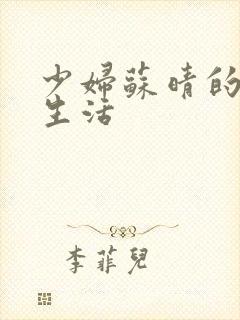 少婦蘇晴的
生活
李菲兒